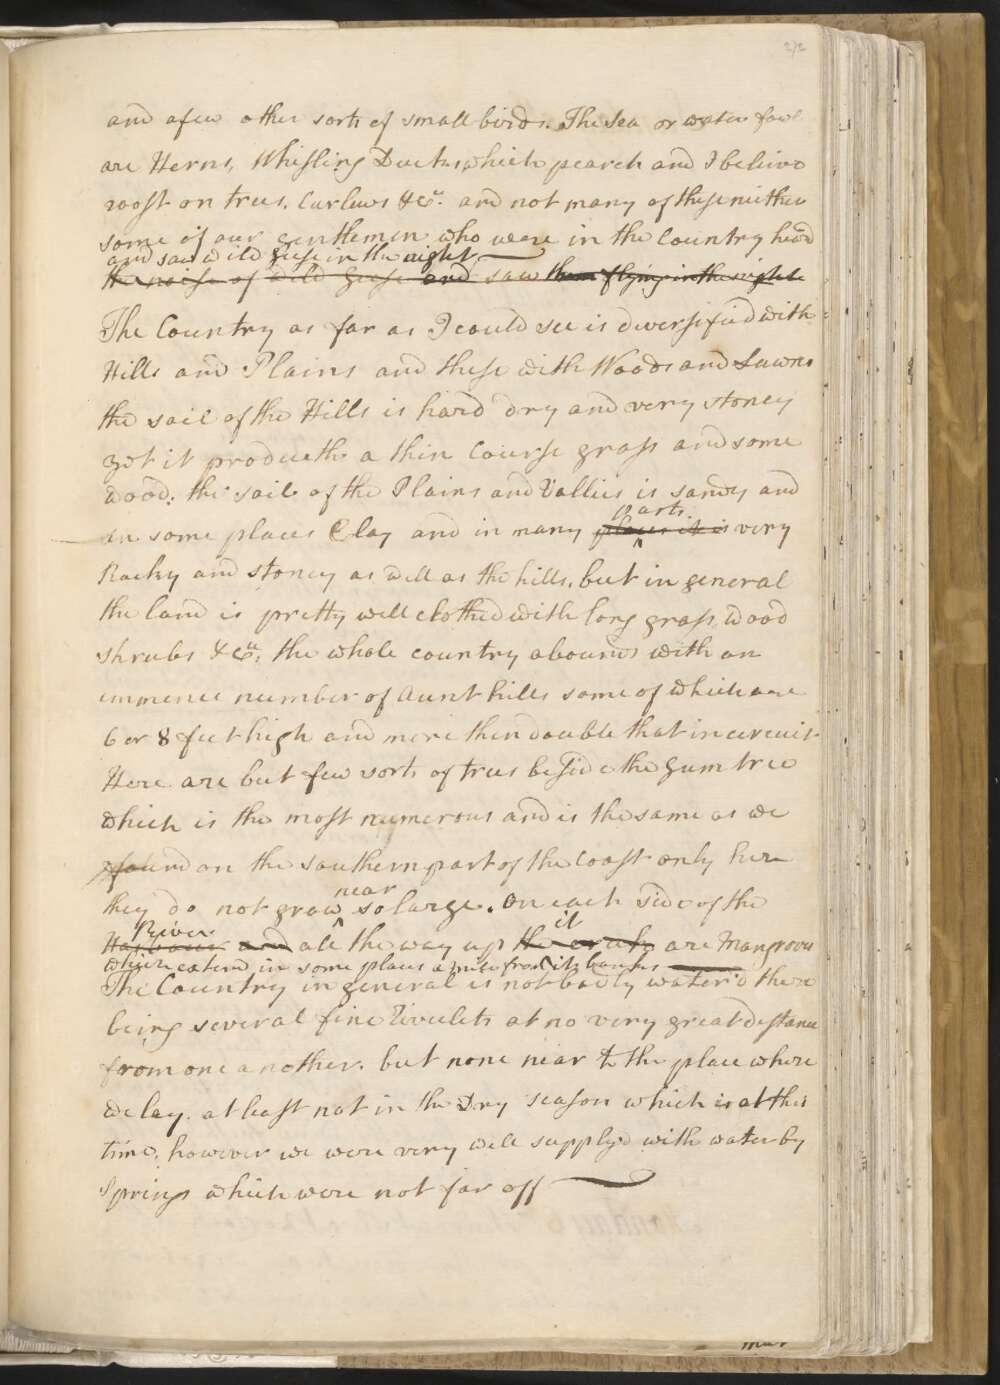 212
and afew other sorts of small birds. The Sea or water fowl
are Herns, Whisling Ducks, which pearch and I believe
roost on trees. Curlews &Ca. and not many of these neither
some of our gentlemen who were in the Country heard
and saw wild geese in the night
the noise of wild geese and saw them flying in the night
The Country as far as I could see is diversified with
Hills and Plains and these with Woods and Lawns
the soil of the Hills is hard dry and very stoney
yet it produceth a thin Course grass and some
wood: the soil of the Plains and Vallies is sandy and
parts
in some places Clay and in many places it is very
Rocky and stoney as well as the hills, but in general
the land is pretty well clothed with long grass, wood
shrubs &Ca: the whole country abounds with an
immence number of Aunt hills some of which are
6 or 8 feet high and more then double that in circuit
Here are but few sorts of trees beside the gum tree
which is the most numerous and is the same as we
found on the southern part of the Coast only here
near
they do not grow so large. on each side of the
River it
Harbour and all the way up the creek are Mangroves
which extend in some places a mile from its banks
The Country in general is not badly water'd there
being several fine Rivulets at no very great distance
from one another. but none near to the place where
we lay. at least not in the Dry season which is at this
time, however we were very well supply'd with water by
springs which were not far off